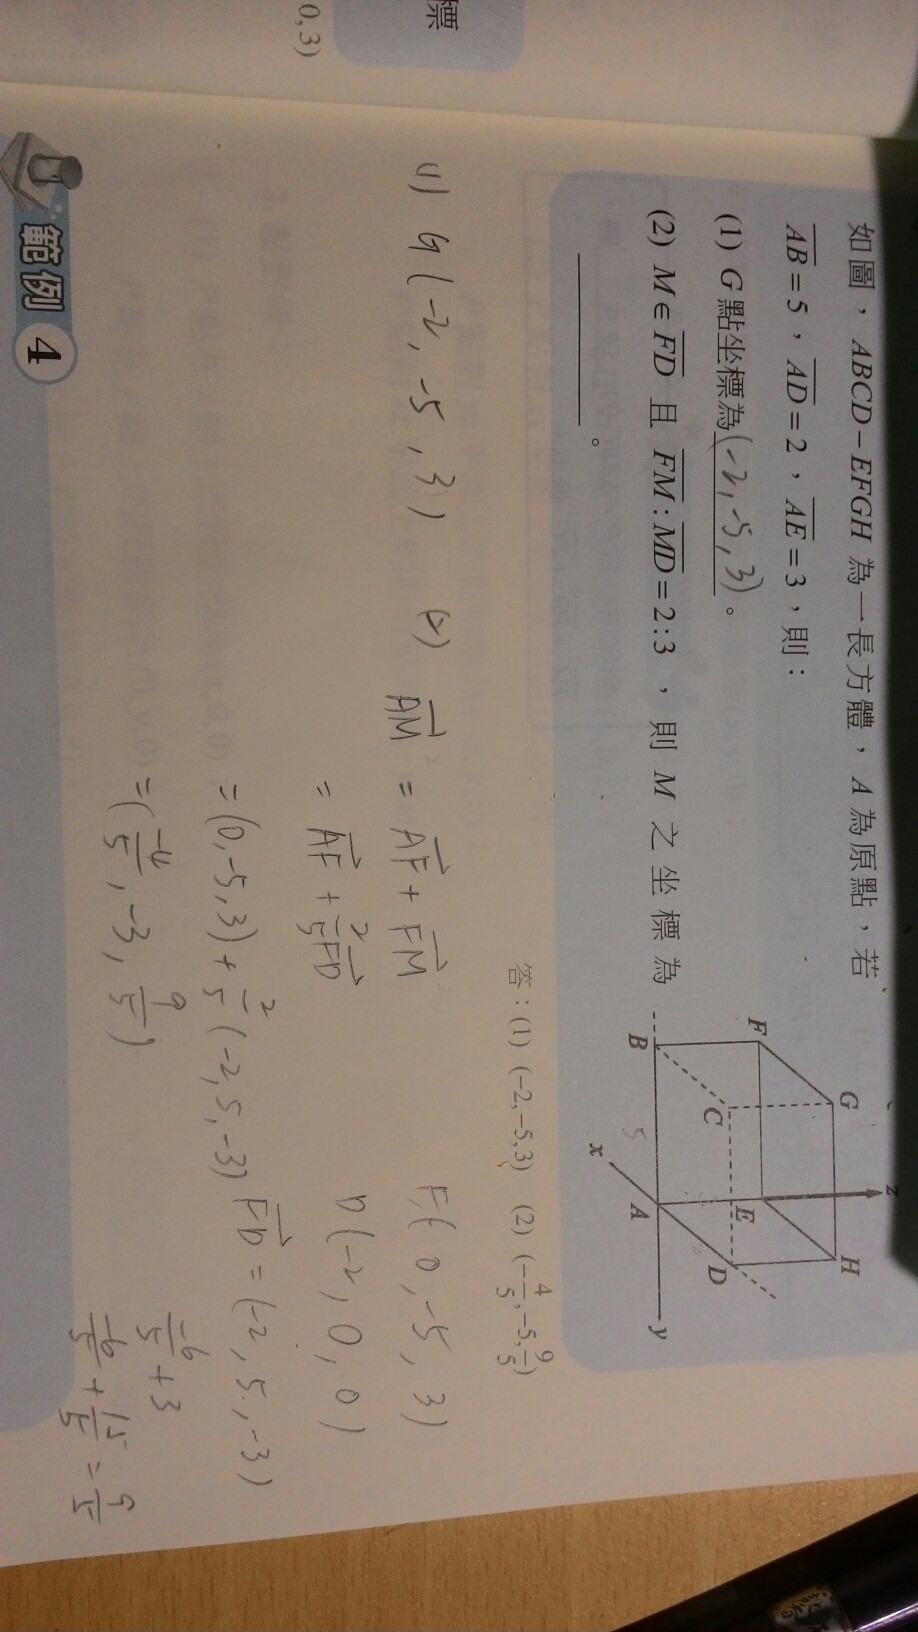 標
0,3)
如圖，ABCD−EFGH 為一長方體，A 為原點，若
AB=5，AD=2，AE=3，則：
(1) G 點坐標為(-2,-5,3)。
(2) M∈FD 且 FM:MD=2:3，則 M 之坐標為
。
G
z
H
F
E
C
D
B
5
A
x
y
答：(1) (−2,−5,3) (2) (−4/5,−5,9/5)
(1) G(-2,-5,3)
(2) AM = AF + FM
= AF + 2/5 FD
= (0,-5,3) + 2/5 (-2,5,-3)
= (-4/5, -3, 9/5)
F(0,-5,3)
D(-2,0,0)
FD = (-2,5,-3)
-6/5 + 3
-6/5 + 15/5 = 9/5
範例 4